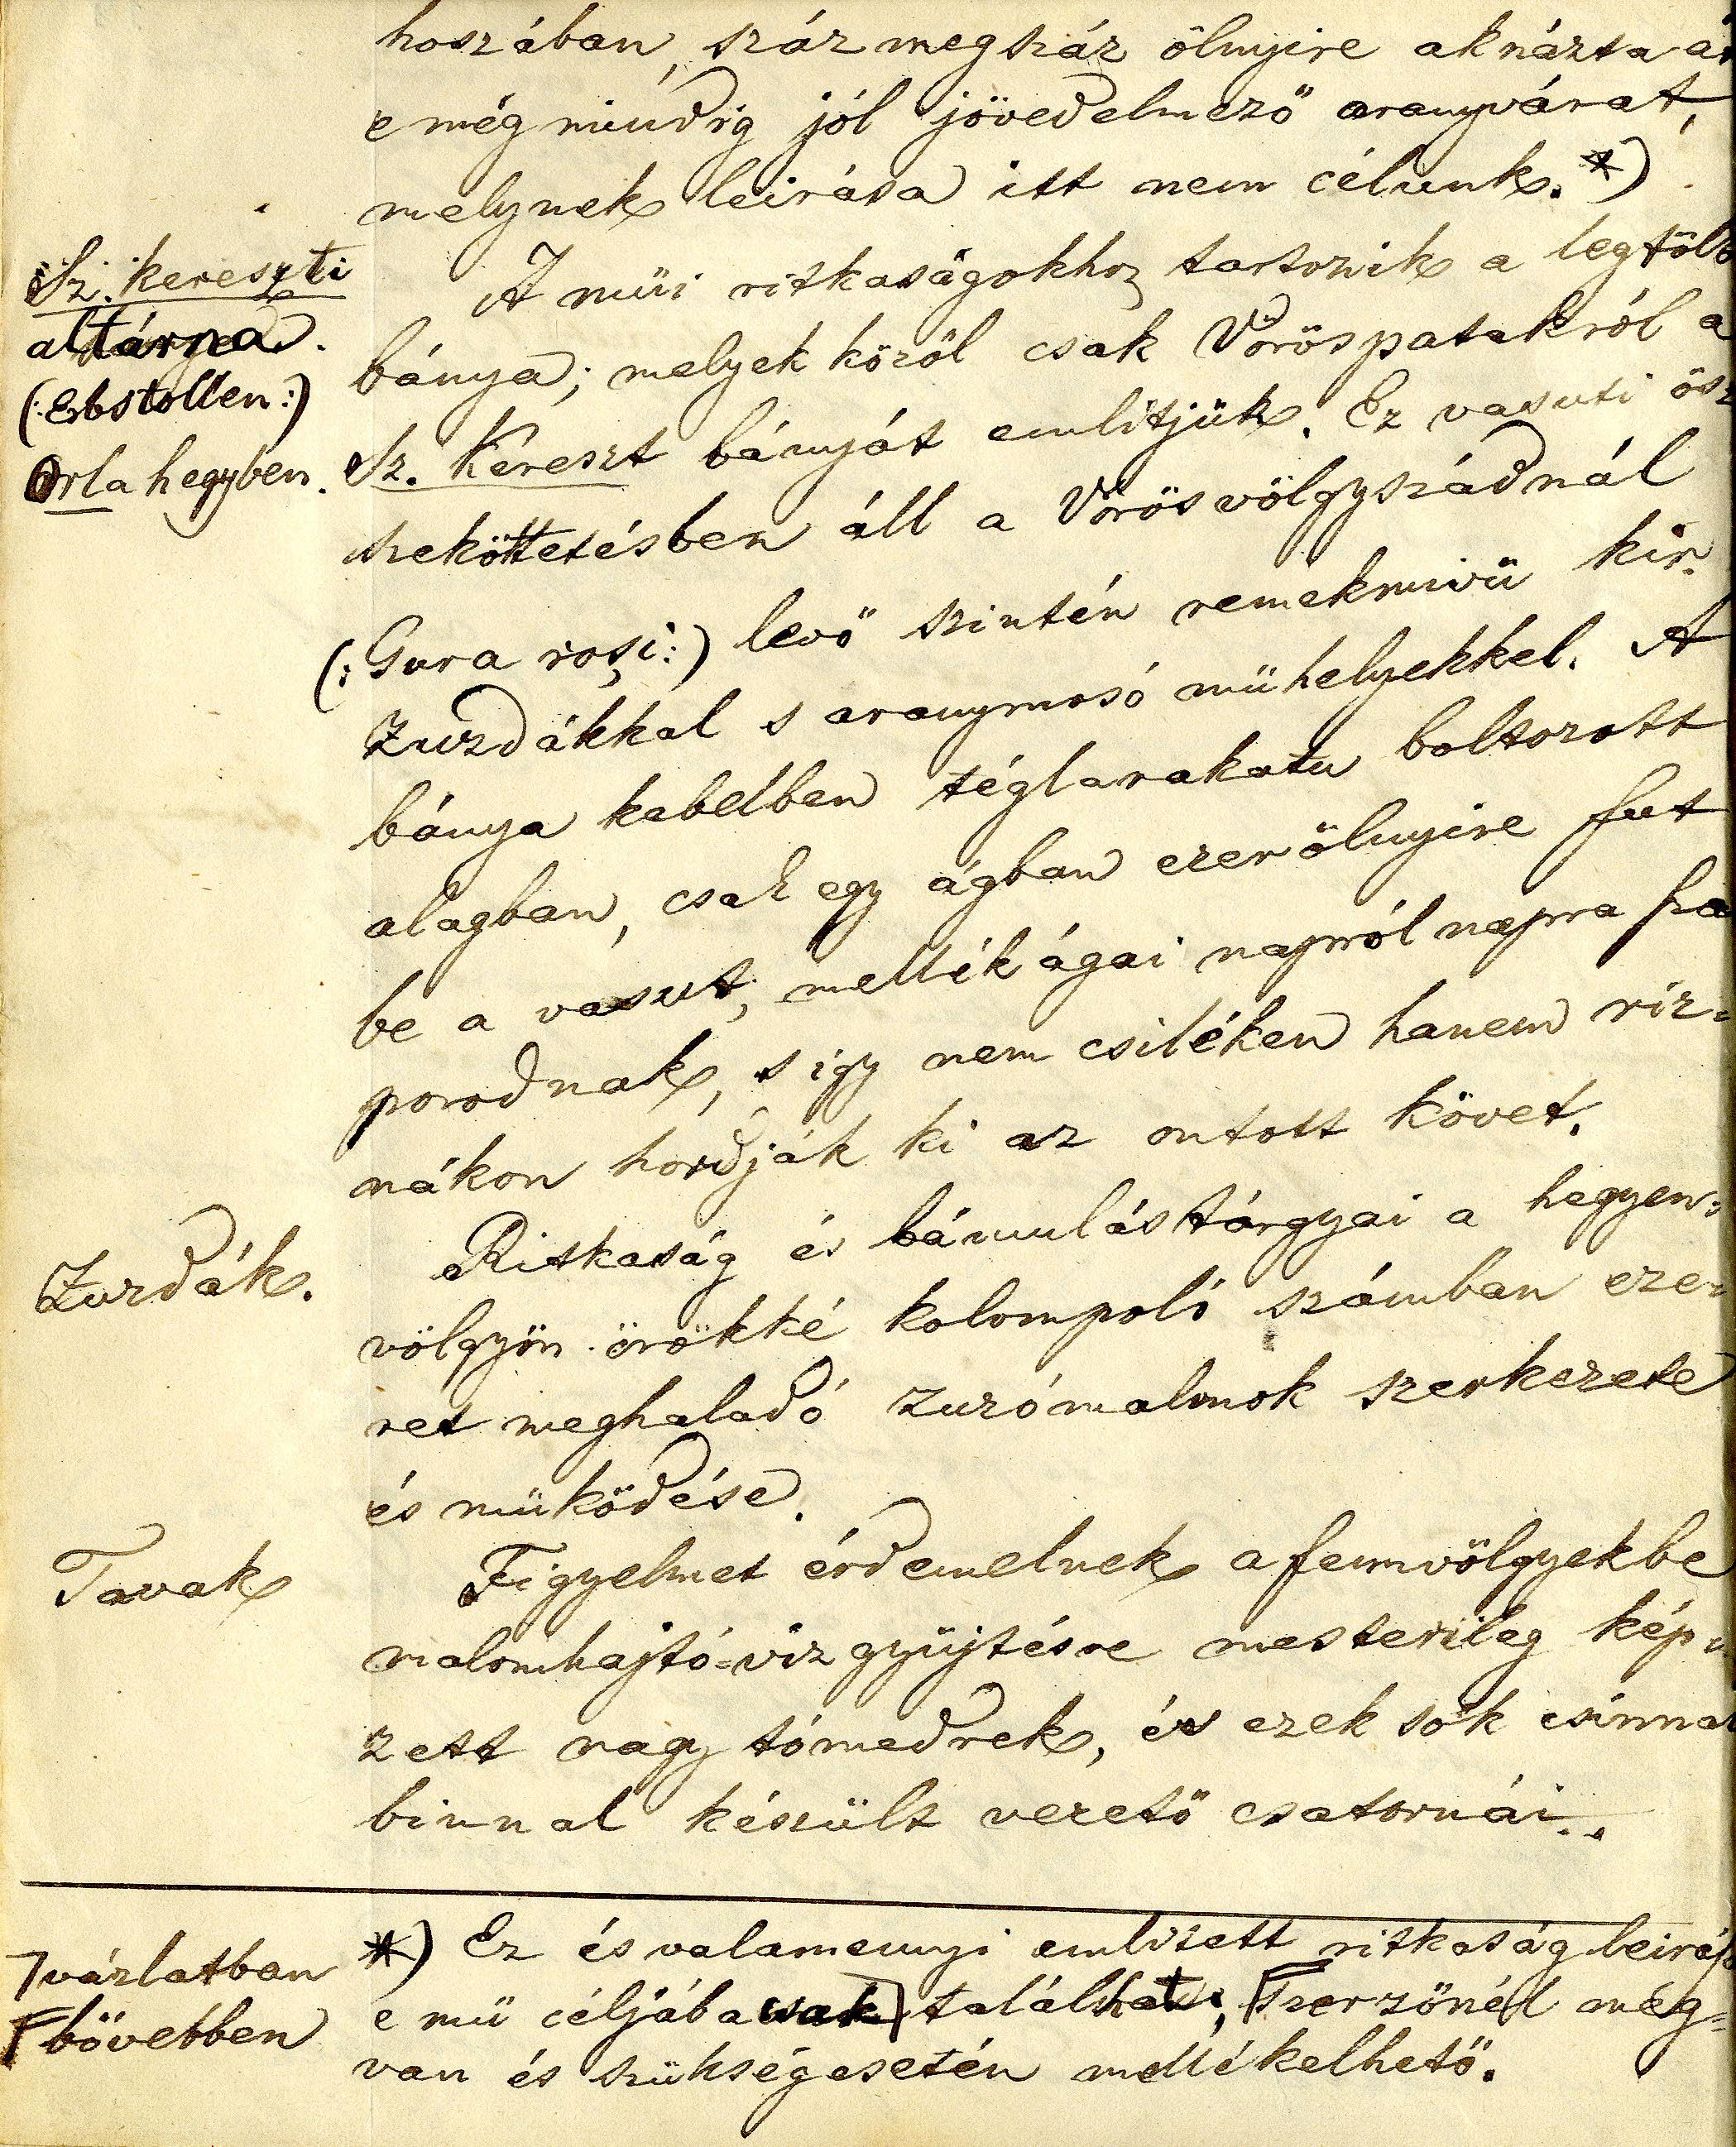 hoszában, száz meg száz ölnyire aknázta át
e még mindig jól jövedelmező aranyvárat,
melynek leirása itt nem célunk. *)
Sz. kereszti
altárna.
(:Erbstollen:)
Orla hegyben.
A müi ritkaságokhoz tartozik a legtöbb
bánya; melyek közöl csak Vöröspatakról a
Sz. Kereszt bányát emlitjük. Ez vasuti ösz
szeköttetésben áll a Vörösvölgyszádnál
(: Gura roşi :) levő szintén remekmivü kir.
Zuzdákkal s aranymosó mühelyekkel. A
bánya kebelben téglarakatu boltozott
alagban, csak egy ágban ezerölnyire fut
be a vasut; mellék ágai napról napra sza
porodnak, s igy nem csiléken hanem riz=
nákon hordják ki az ontott követ.
Zuzdák.
Ritkaság és bámulás tárgyai a hegyen=
völgyön örökké kolompoló számban eze=
ret meghaladó zuzómalmok szerkezete
és müködése.
Tavak
Figyelmet érdemelnek a fennvölgyekbe
malomhajtó=viz gyüjtésre mesterileg kép=
zett nagy tómedrek, és ezek sok csinnal
binnal készült vezető csatornái..
*) Ez és valamennyi emlitett ritkaság leirása
e mü céljába csak található, Szerzőnél meg=
van és szükség esetén mellékelhető.
vázlatban
bövebben